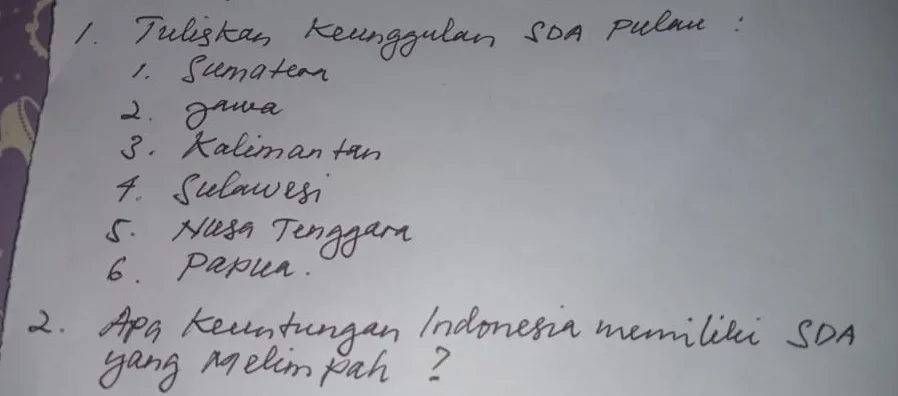 1. Tuliskan Keunggulan SDA Pulau :
1. Sumatera
2. Jawa
3. Kalimantan
4. Sulawesi
5. Nusa Tenggara
6. Papua.
2. Apa Keuntungan Indonesia memiliki SDA
yang Melimpah ?